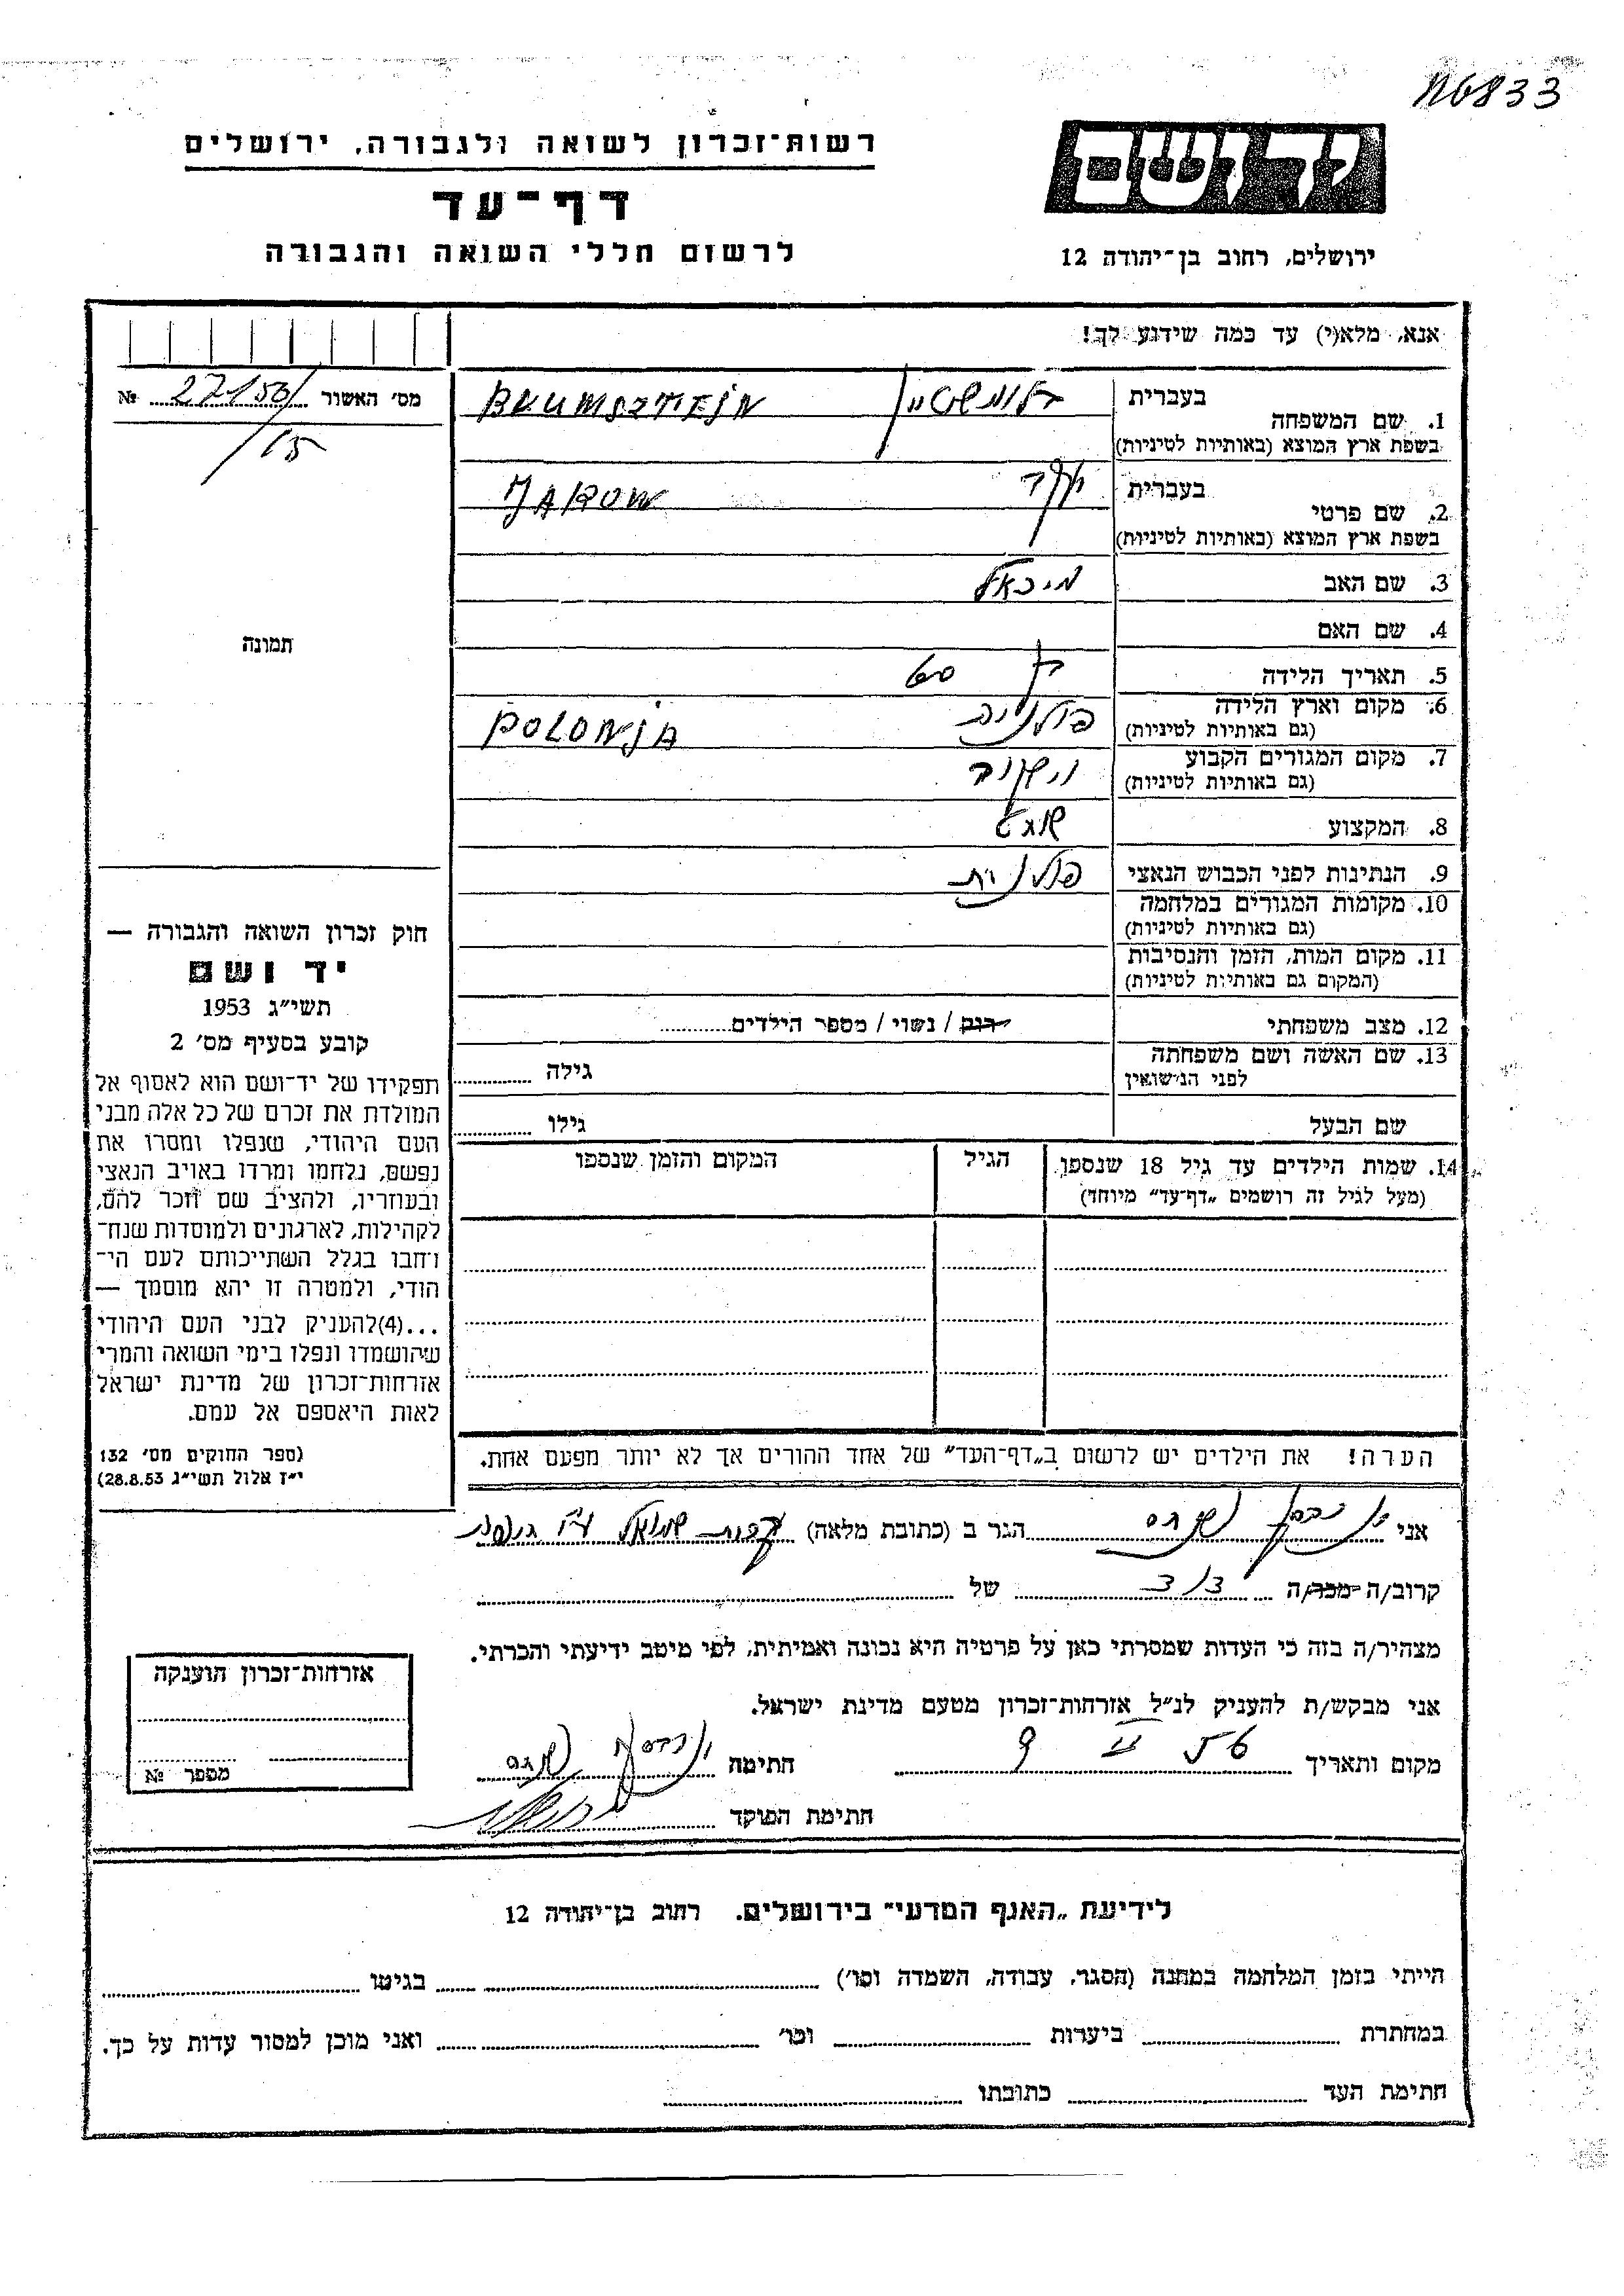 116833
יד ושם
רשות־זכרון לשואה ולגבורה, ירושלים
דף־עד
לרשום חללי השואה והגבורה
ירושלים, רחוב בן־יהודה 12
אנא, מלא(י) עד כמה שידוע לך!
מס׳ האשור 27150/ №
15
תמונה
1. שם המשפחה בעברית
בשפת ארץ המוצא (באותיות לטיניות)
BAUMSZTEJN
2. שם פרטי בעברית
בשפת ארץ המוצא (באותיות לטיניות)
3. שם האב מיכאל
4. שם האם
5. תאריך הלידה בן 60
6. מקום וארץ הלידה פולניה POLONJA
(גם באותיות לטיניות)
7. מקום המגורים הקבוע
(גם באותיות לטיניות)
8. המקצוע שוחט
9. הנתינות לפני הכבוש הנאצי פולנית
10. מקומות המגורים במלחמה
(גם באותיות לטיניות)
11. מקום המות, הזמן והנסיבות
(המקום גם באותיות לטיניות)
12. מצב משפחתי רווק / נשוי / מספר הילדים
13. שם האשה ושם משפחתה גילה
לפני הנישואין
שם הבעל גילו
14. שמות הילדים עד גיל 18 שנספו הגיל המקום והזמן שנספו
(מעל לגיל זה רושמים „דף־עד” מיוחד)
חוק זכרון השואה והגבורה —
יד ושם
תשי״ג 1953
קובע בסעיף מס׳ 2
תפקידו של יד־ושם הוא לאסוף אל
המולדת את זכרם של כל אלה מבני
העם היהודי, שנפלו ומסרו את
נפשם, נלחמו ומרדו באויב הנאצי
ובעוזריו, ולהציב שם וזכר להם,
לקהילות, לארגונים ולמוסדות שנח־
רבו בגלל השתייכותם לעם הי־
הודי, ולמטרה זו יהא מוסמך —
...(4)להעניק לבני העם היהודי
שהושמדו ונפלו בימי השואה והמרי
אזרחות־זכרון של מדינת ישראל
לאות היאספם אל עמם.
(ספר החוקים מס׳ 132
י״ז אלול תשי״ג 28.8.53)
הערה! את הילדים יש לרשום ב„דף־העד” של אחד ההורים אך לא יותר מפעם אחת.
אני הגר ב (כתובת מלאה)
קרוב/ה מכר/ה של
מצהיר/ה בזה כי העדות שמסרתי כאן על פרטיה היא נכונה ואמיתית, לפי מיטב ידיעתי והכרתי.
אני מבקש/ת להעניק לנ״ל אזרחות־זכרון מטעם מדינת ישראל.
מקום ותאריך חתימה
חתימת הפוקד
אזרחות־זכרון הוענקה
מספר №
לידיעת „האגף המדעי” בירושלים. רחוב בן־יהודה 12
הייתי בזמן המלחמה במחנה (הסגר, עבודה, השמדה וכו׳) בגיטו
במחתרת ביערות וכו׳ ואני מוכן למסור עדות על כך.
חתימת העד כתובתו